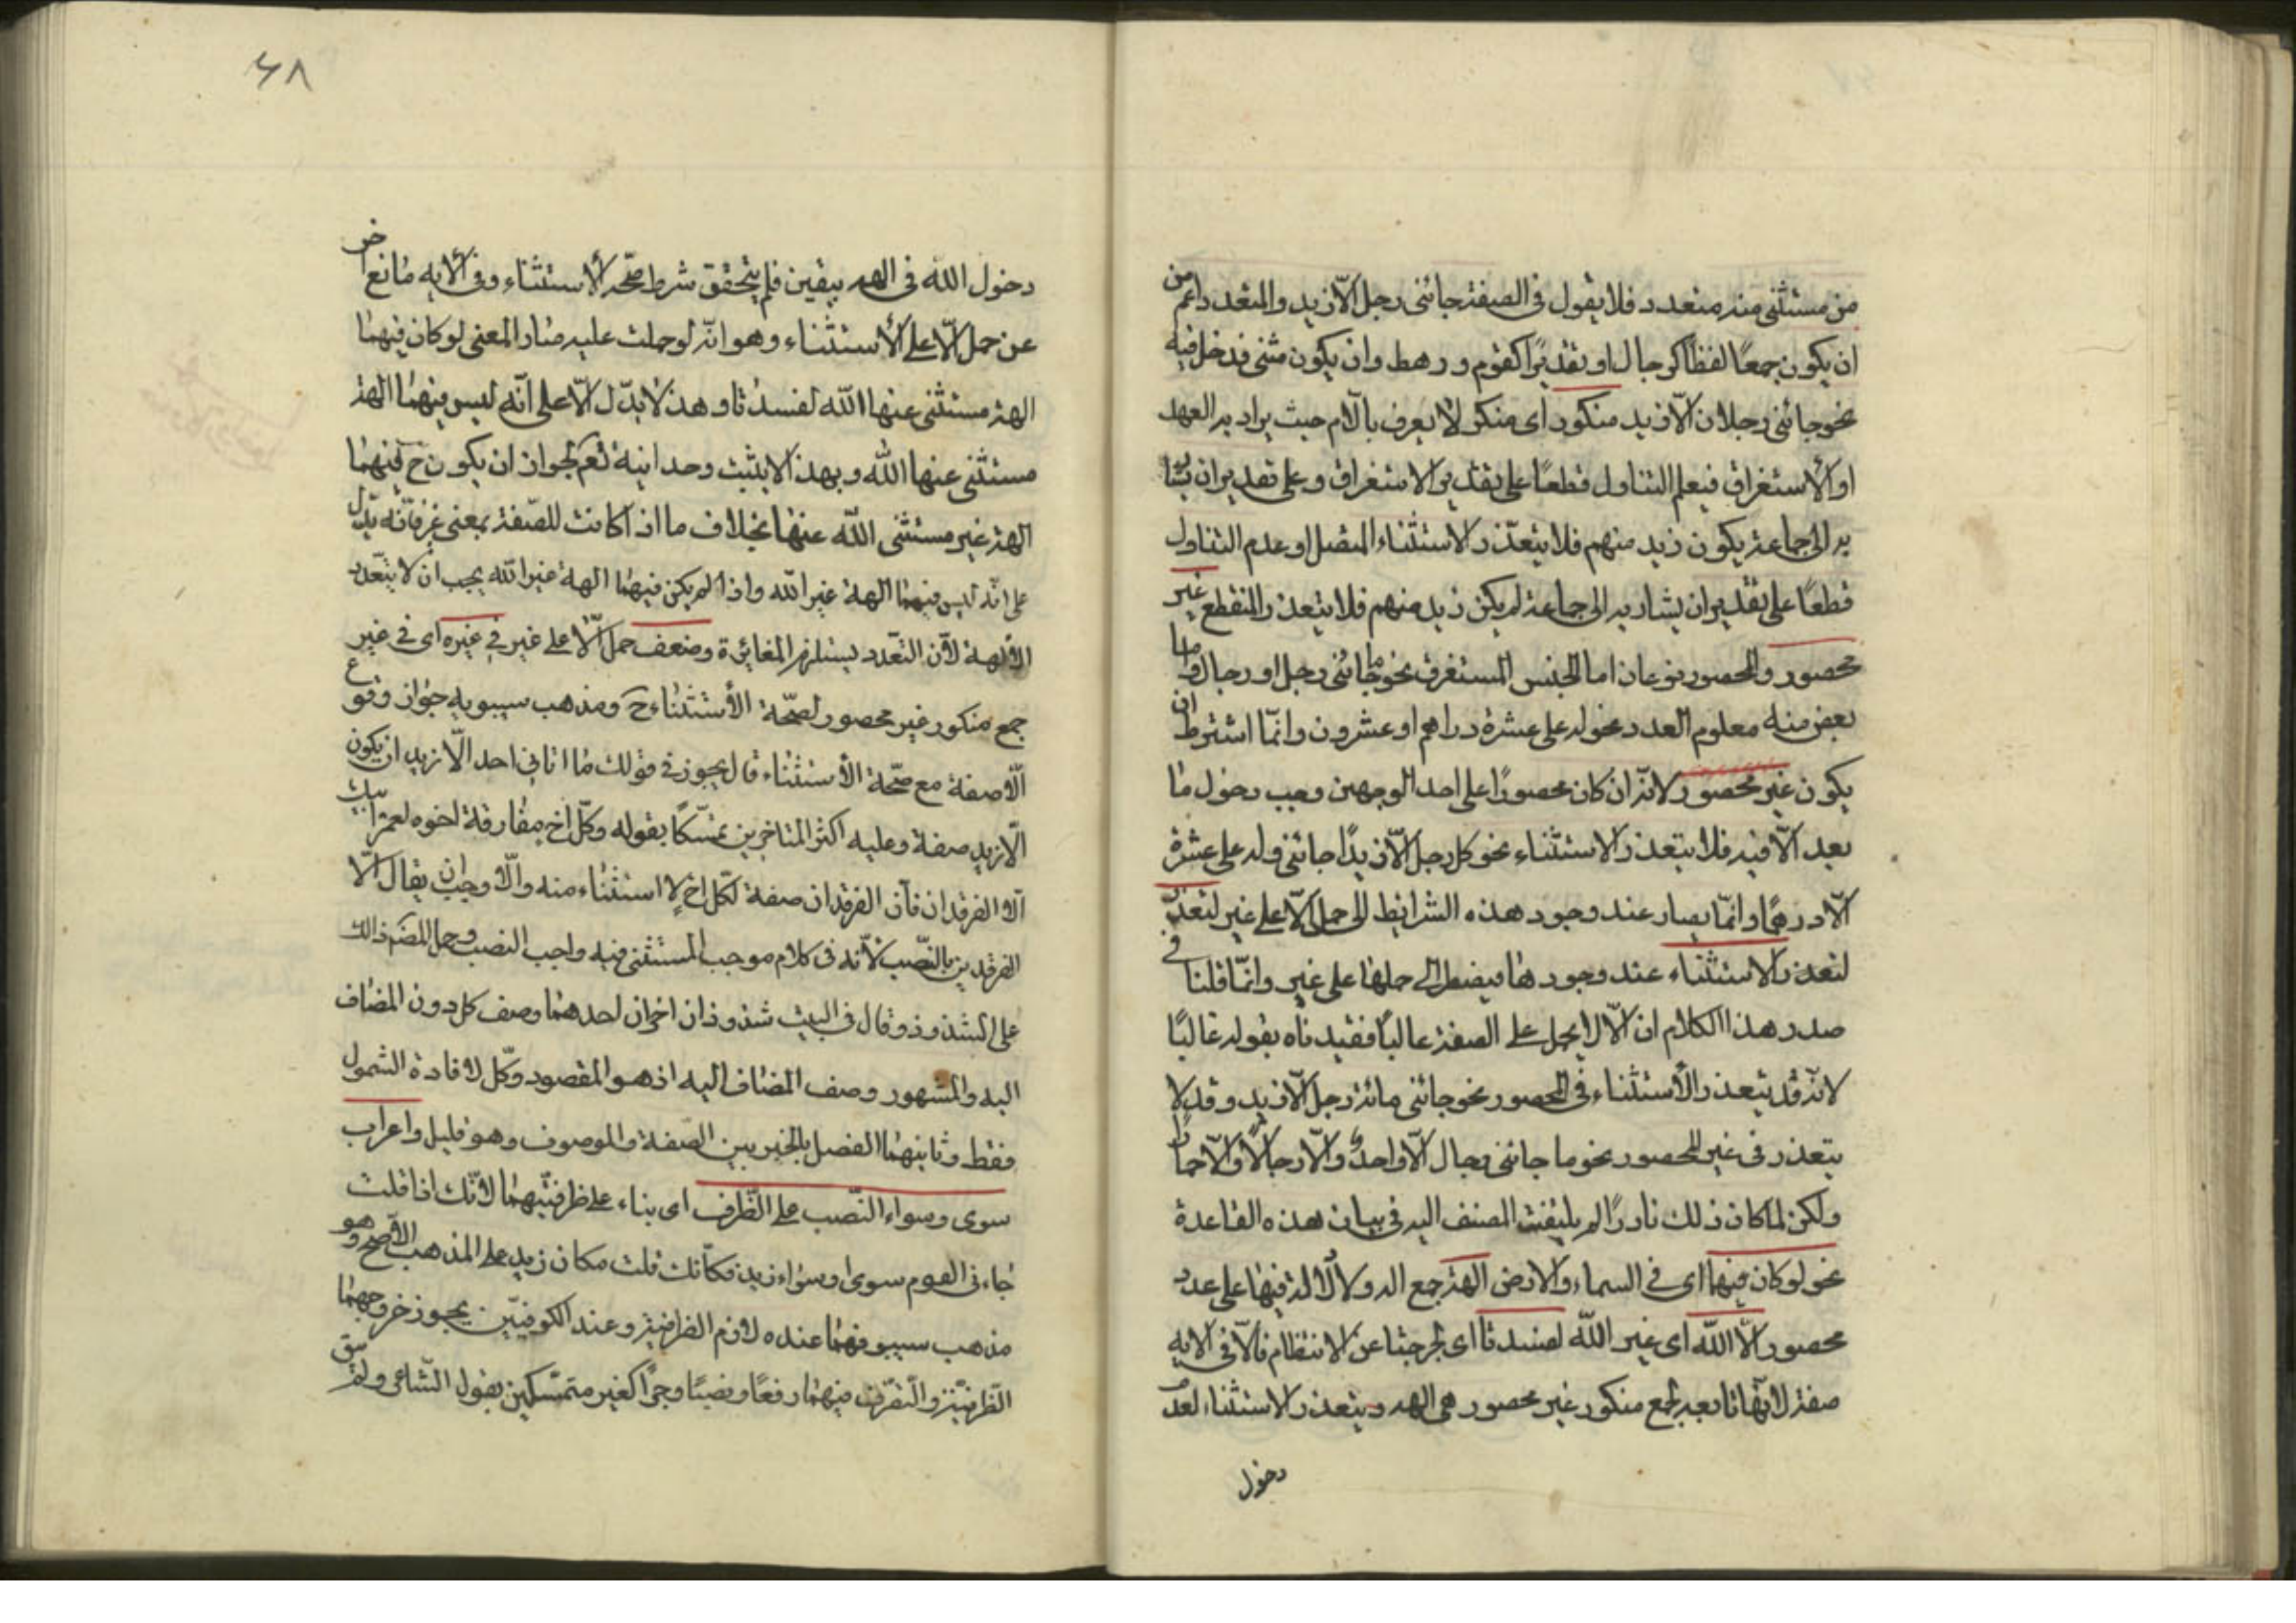 من مستثنى منه متعدد فلا يقول فى الصفة جائنى رجل الّا زيد والمتعدد اعم من
ان يكون جمعًا لفظًا كرجال او تقديرًا كقوم ورهط وان يكون مثنى فدخل فيه
نحو جائنى رجلان الّا زيد منكور اى منكر لا يعرف باللام حيث يراد به العهد
او الاستغراق فيعلم التناول قطعًا على تقدير الاستغراق وعلى تقدير ان يشا
به الى جماعة يكون زيد منهم فلا يتعذّر الاستثناء المتصل او عدم التناول
قطعًا على تقدير ان يشار به الى جماعة لم يكن زيد منهم فلا يتعذر المنقطع غير
محصور والمحصور نوعان اما الجنس المستغرق نحو ما جائنى رجل او رجال واما
بعض منه معلوم العدد نحو له على عشرة دراهم او عشرون وانّما اشترط ان
يكون غير محصور لانّه ان كان محصورًا على احد الوجهين وجب دخول ما
بعد الّا فيه فلا يتعذر الاستثناء نحو كل رجل الّا زيدًا جائنى وله على عشرة
الّا درهمًا وانّما يصار عند وجود هذه الشرايط الى حمل الّا على غير لتعذّر
لتعذر الاستثناء عند وجودها فيضطر الى حملها على غير وانّما قلنا فى
صدر هذا الكلام ان الّا لا يحمل على الصفة غالبًا فقيدناه بقوله غالبًا
لانّه قد يتعذر الاستثناء فى المحصور نحو جائنى مائة رجل الّا زيد وقد لا
يتعذر فى غير المحصور نحو ما جائنى رجال الّا واحدًا والّا رجلًا والّا حمارًا
ولكن لما كان ذلك نادرًا لم يلتفت المصنف اليه فى بيان هذه القاعدة
نحو لو كان فيهما اى فى السماء والارض الهة جمع اله ولا دلالة فيها على عدد
محصور الّا الله اى غير الله لفسدتا اى لخرجتا عن الانتظام فالّا فى الايه
صفة لانّها تابعه لجمع منكور غير محصور هى الهه ويتعذر الاستثناء لعدم
دخول
٤٨
دخول الله فى الهه بيقين فلم يتحقق شرط صحّه الاستثناء وفى الايه مانع اخر
عن حمل الّا على الاستثناء وهو انّه لو حملت عليه صار المعنى لو كان فيهما
الهة مستثنى عنها الله لفسدتا وهذا لا يدّل الّا على انّه ليس فيهما الهة
مستثنى عنها الله وبهذا لا يثبت وحدانية تعم لجواز ان يكون ح فيهما
الهة غير مستثنى الله عنها بخلاف ما اذا كانت للصّفة بمعنى غير فانّه يدّل
على انّه ليس فيهما الهة غير الله واذا لم يكن فيهما الهة غير الله يجب ان لا يتعدد
الالهة لانّ التعّدد يستلزم المغايرة وضعف حمل الّا على غير فى غيره اى فى غير
جمع منكور غير محصور لصّحة الاستثناء ح ومذهب سيبويه جواز وقوع
الّا صفة مع صحّة الاستثناء قال يجوز فى قولك ما اتانى احد الّا زيد ان يكون
الّا زيد صفة وعليه اكثر المتاخرين تمسّكًا بقوله وكلّ اخ مفارقة اخوه لعمر ابيك
الّا الفرقدان فانّ الفرقدان صفة لكلّ اخ لا استثناء منه والّا وجب ان يقال الّا
الفرقدين بالنّصب لانّه فى كلام موجب المستثنى فيه واجب النصب وحمل المصّ ذالك
على الشذوذ وقال فى البيت شذوذان اخران احدهما وصف كل دون المضاف
اليه والمشهور وصف المضاف اليه اذ هو المقصود وكّل لافادة الشمول
فقط وثانيهما الفصل بالخبر بين الصّفة والموصوف وهو قليل واعراب
سوى وسواء النّصب على الظّرف اى بناء على ظرفيّتهما لانّك اذا قلت
جاءنى القوم سوى وسواء زيد فكانّك قلت مكان زيد على المذهب الاصّح وهو
مذهب سيبو فهما عنده لازم الظرفية وعند الكوفيّين يجوز خروجهما
الظّرفيّة والتّصرّف فيهما رفعًا ونصبًا وجرًّا كغير متمسّكين بقول الشّاعر ولم يبق